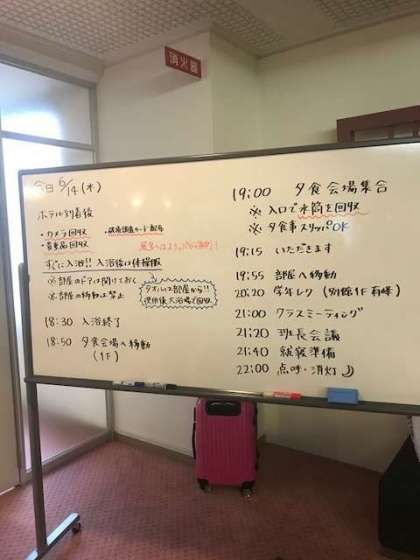 消火器
今日 6/14 (木)
ホテル到着後
・カメラ回収
・貴重品回収
・健康調査カード配布
すぐに入浴!! 入浴後は体操服
※部屋のドアは開けておく
※部屋の移動は禁止
タオルは部屋から!!
使用後 大浴場で回収
18:30 入浴終了
18:50 夕食会場へ移動
(1F)
19:00 夕食会場集合
※入口で水筒を回収
※夕食事スリッパOK
19:15 いただきます
19:55 部屋へ移動
20:20 学年レク (別館1F
21:00 クラスミーティング
21:20 班長会議
21:40 就寝準備
22:00 点呼・消灯